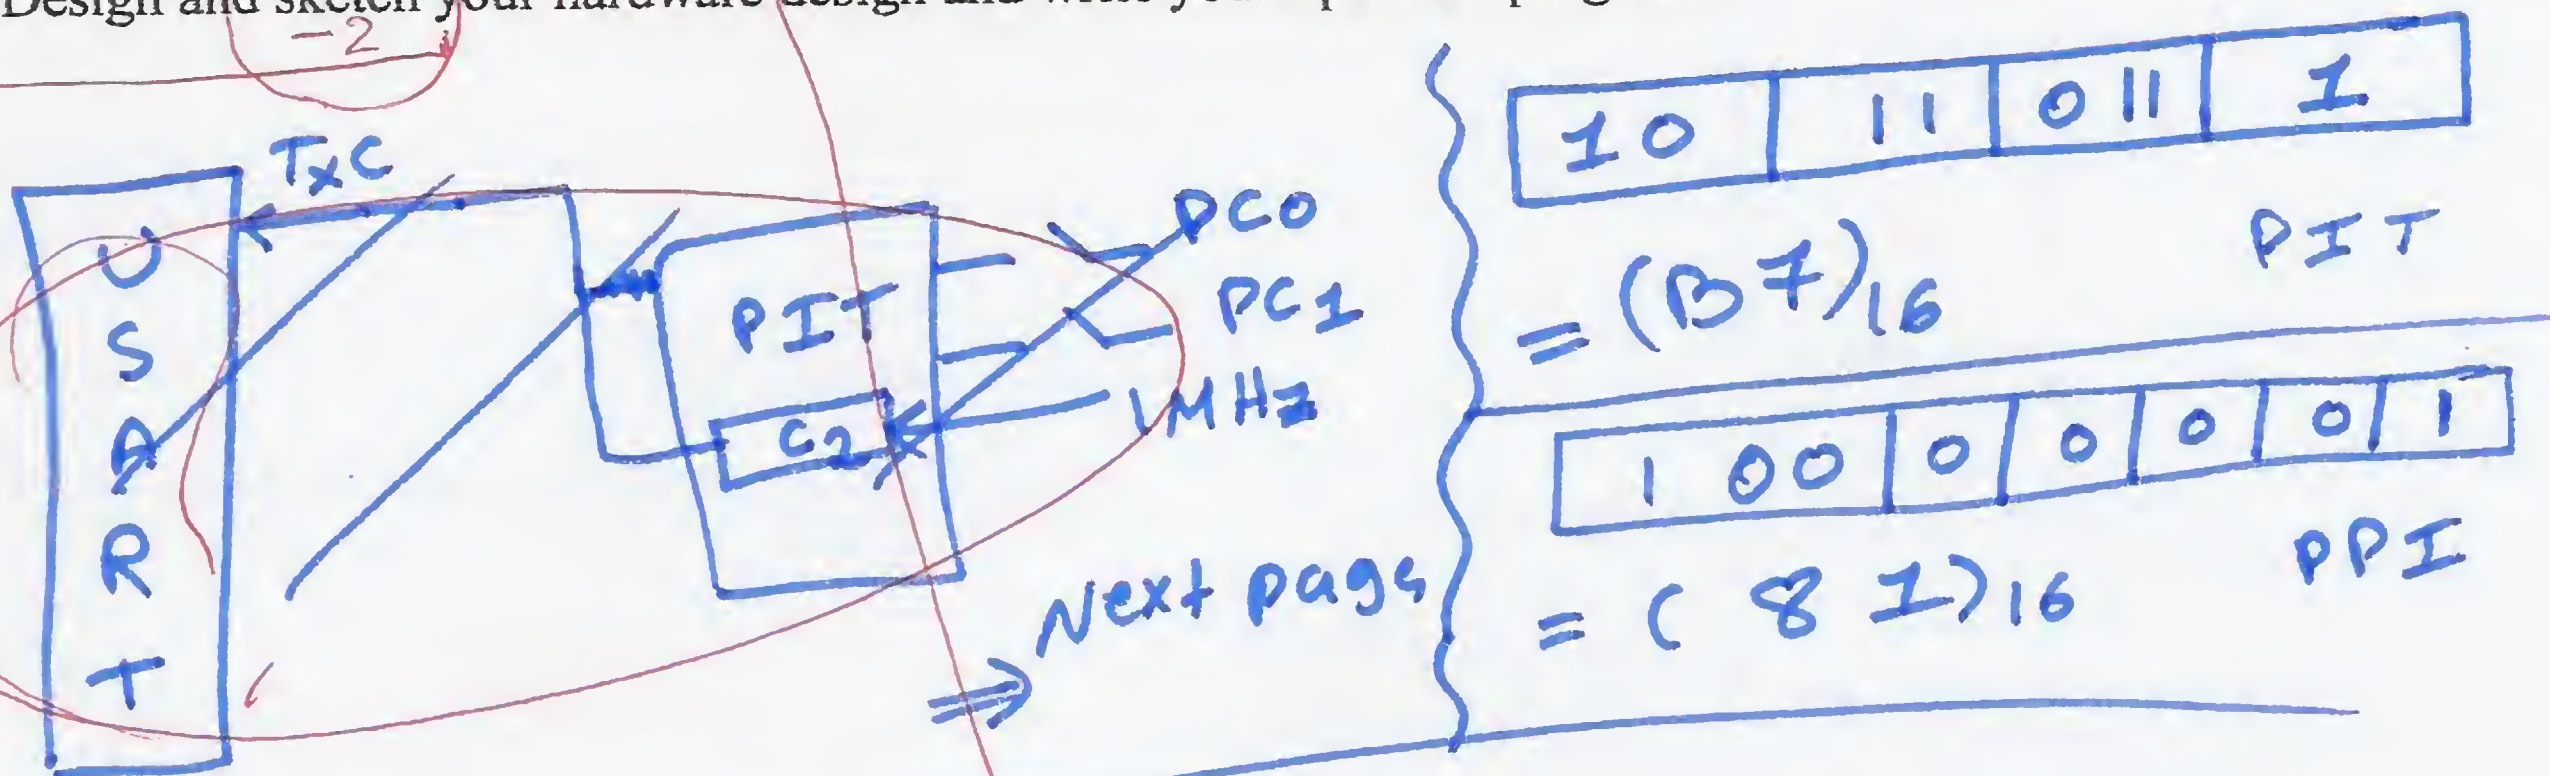 Design and sketch your hardware design and write your
-2
TxC
USART
PIT
C2
PC0
PC1
1MHz
⇒ Next page
10 11 011 1
PIT
= (B7)16
1 00 0 0 0 0 1
PPI
= (81)16